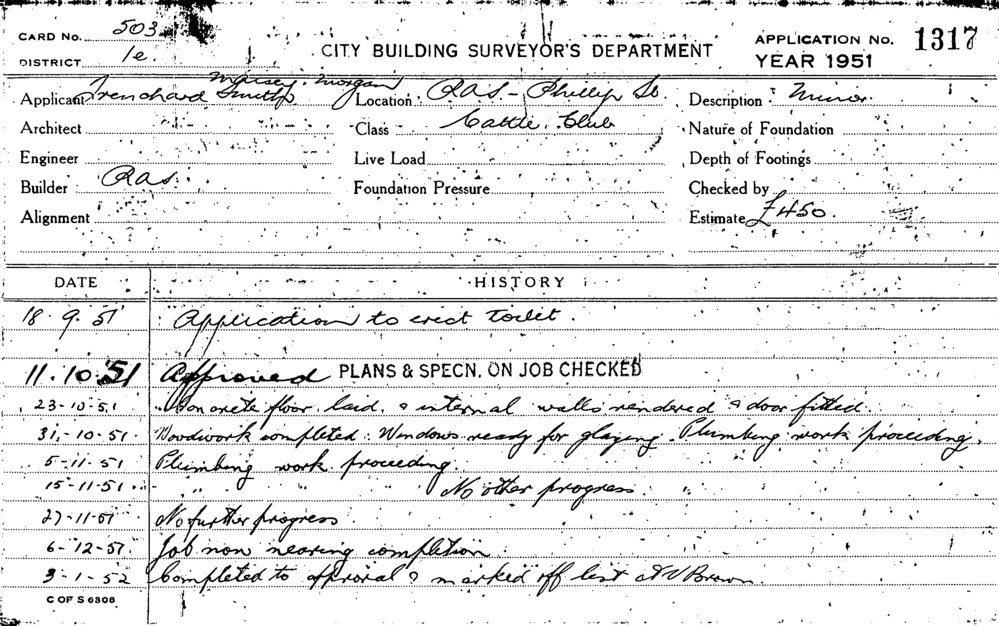 CARD No. 503
DISTRICT 1e.
CITY BUILDING SURVEYOR'S DEPARTMENT
APPLICATION No. 1317
YEAR 1951
Morgan
Applicant Trenchard Smith
Location RAS - Phillip St
Description Minor
Architect
Class Cattle Club
Nature of Foundation
Engineer
Live Load
Depth of Footings
Builder RAS.
Foundation Pressure
Checked by
Alignment
Estimate £450.
DATE HISTORY
18.9.51 Application to erect toilet.
11.10.51 Approved PLANS & SPECN. ON JOB CHECKED
23-10-51 Concrete floor laid, & internal walls rendered & door fitted.
31-10-51 Woodwork completed. Windows ready for glazing. Plumbing work proceeding.
5-11-51 Plumbing work proceeding.
15-11-51 " " " No other progress.
27-11-51 No further progress.
6-12-51 Job now nearing completion.
3-1-52 Completed to approval & marked off list Brown.
C OF S 6308